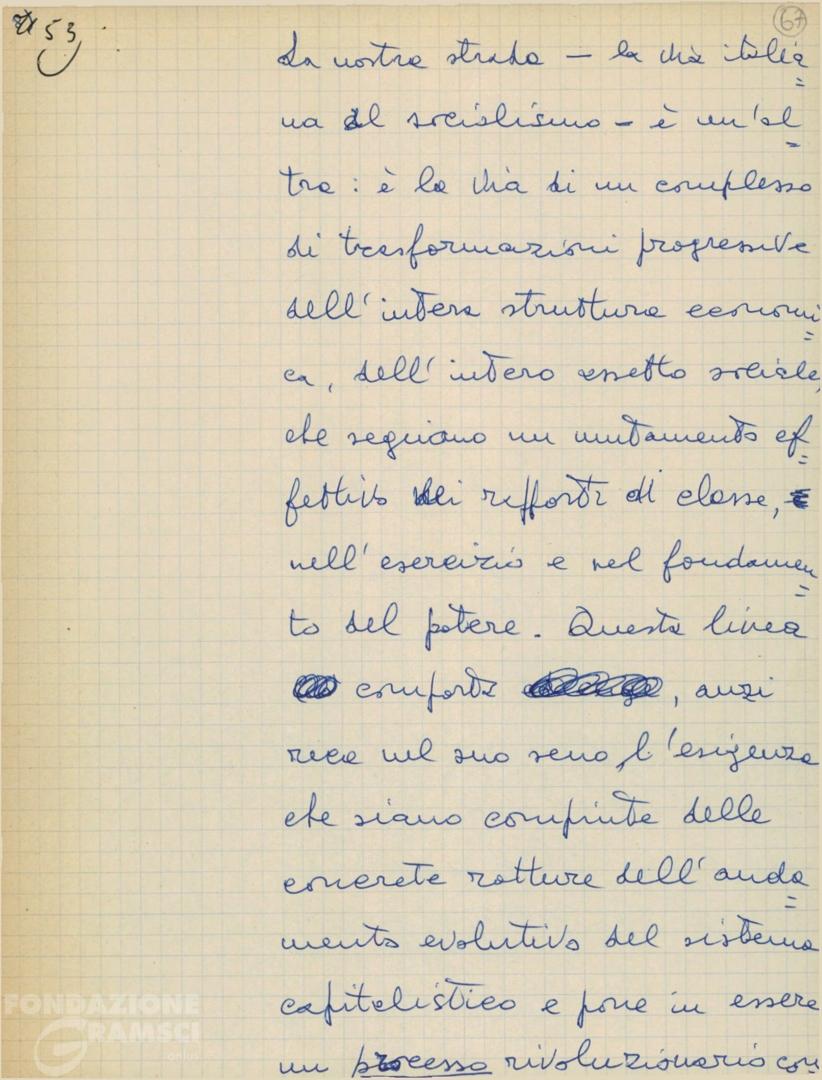 53
67
La nostra strada — la via italia=
na al socialismo — è un'al=
tra: è la via di un complesso
di trasformazioni progressive
dell'intera struttura economi=
ca, dell'intero assetto sociale,
che segnano un mutamento ef=
fettivo dei rapporti di classe,
nell'esercizio e nel fondamen=
to del potere. Questa linea
comporta , anzi
reca nel suo seno, l'esigenza
che siano compiute delle
concrete rotture dell'anda=
mento evolutivo del sistema
capitalistico e pone in essere
un processo rivoluzionario con
FONDAZIONE
GRAMSCI
onlus